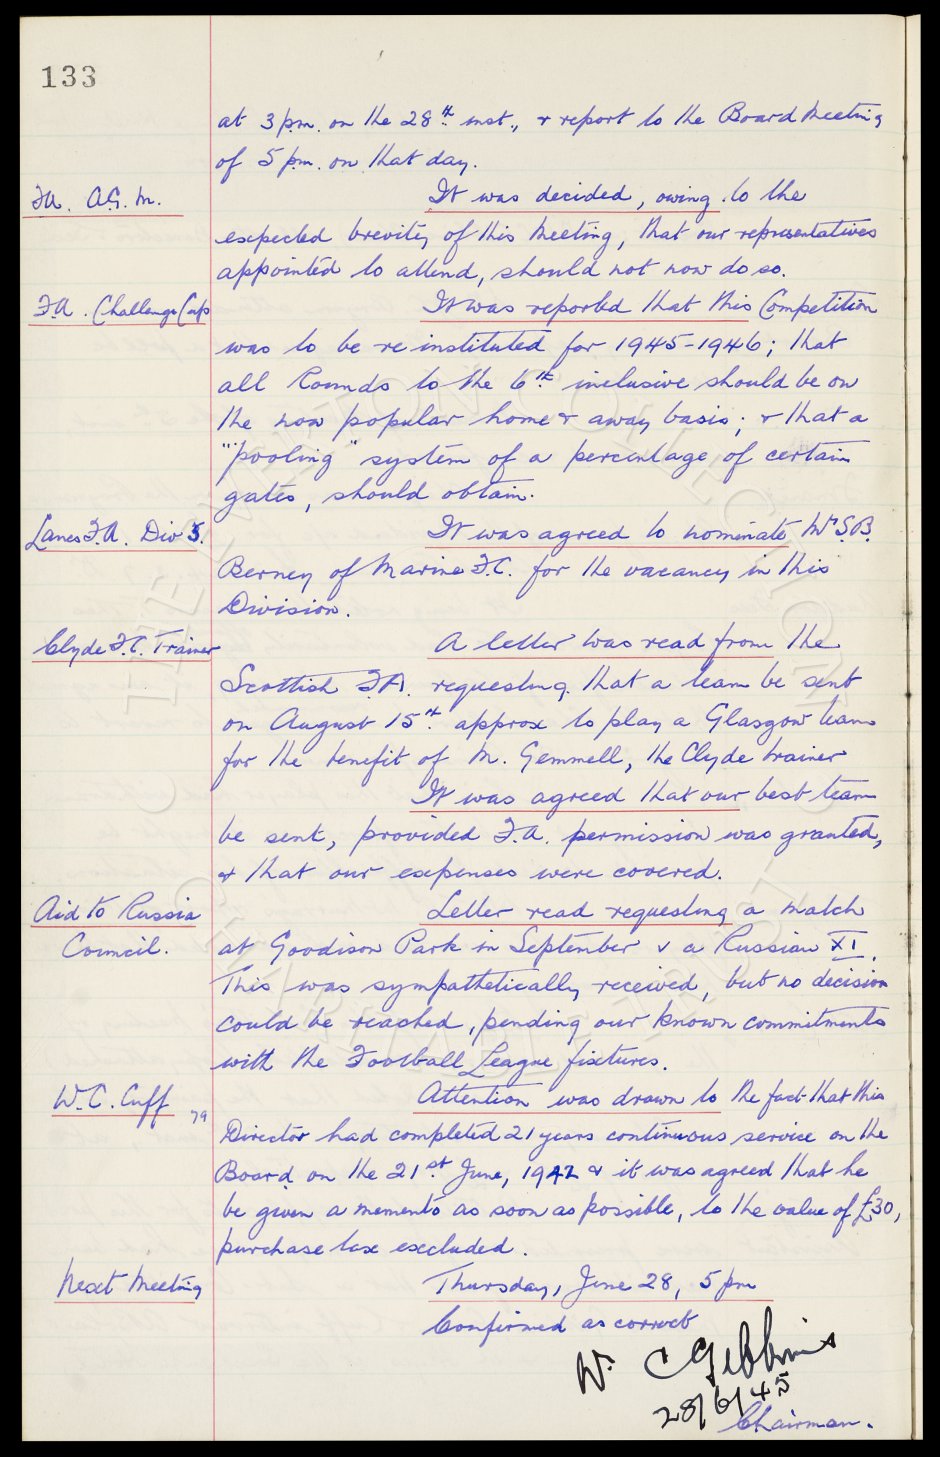 133
at 3 p.m. on the 28th. inst., & report to the Board Meeting
of 5 p.m. on that day.
F.A. A.G.M.
It was decided, owing to the
expected brevity of this Meeting, that our representatives
appointed to attend, should not now do so.
F.A. Challenge Cup
It was reported that this Competition
was to be re instituted for 1945-1946; that
all Rounds to the 6th. inclusive should be on
the now popular home & away basis; & that a
"pooling" system of a percentage of certain
gates, should obtain.
Lancs F.A. Div 5.
It was agreed to nominate Mr S.B.
Berney of Marine F.C. for the vacancy in this
Division.
Clyde F.C. Trainer
A letter was read from the
Scottish F.A. requesting that a team be sent
on August 15th. approx to play a Glasgow team
for the benefit of M. Gemmell, the Clyde trainer
It was agreed that our best team
be sent, provided F.A. permission was granted,
& that our expenses were covered.
Aid to Russia
Council.
Letter read requesting a match
at Goodison Park in September v a Russian XI.
This was sympathetically received, but no decision
could be reached, pending our known commitments
with the Football League fixtures.
W.C. Cuff
79
Attention was drawn to the fact that this
Director had completed 21 years continuous service on the
Board on the 21st June, 1942 & it was agreed that he
be given a memento as soon as possible, to the value of £30,
purchase tax excluded.
Next Meeting
Thursday, June 28, 5 pm
Confirmed as correct
W. C Gibbins
28/6/45
Chairman.